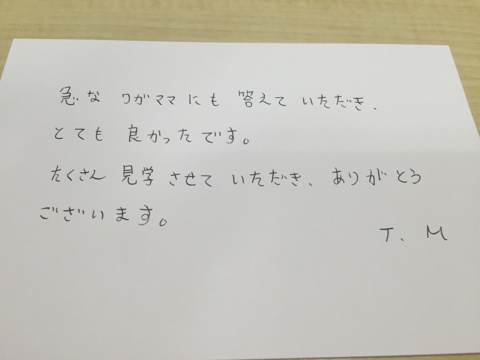 急な ワガママにも 答えて いただき、
とても 良かったです。
たくさん 見学 させて いただき、ありがとう
ございます。
T. M